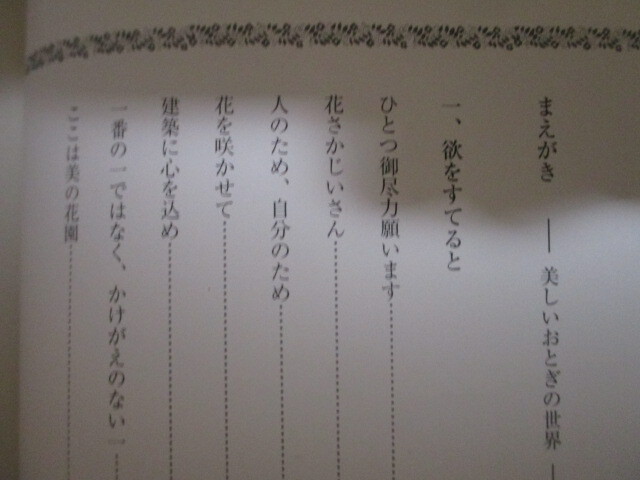 まえがき ── 美しいおとぎの世界 ─
一、欲をすてると
ひとつ御尽力願います………
花さかじいさん………
人のため、自分のため………
花を咲かせて………
建築に心を込め………
一番の一ではなく、かけがえのない一…
ここは美の花園………